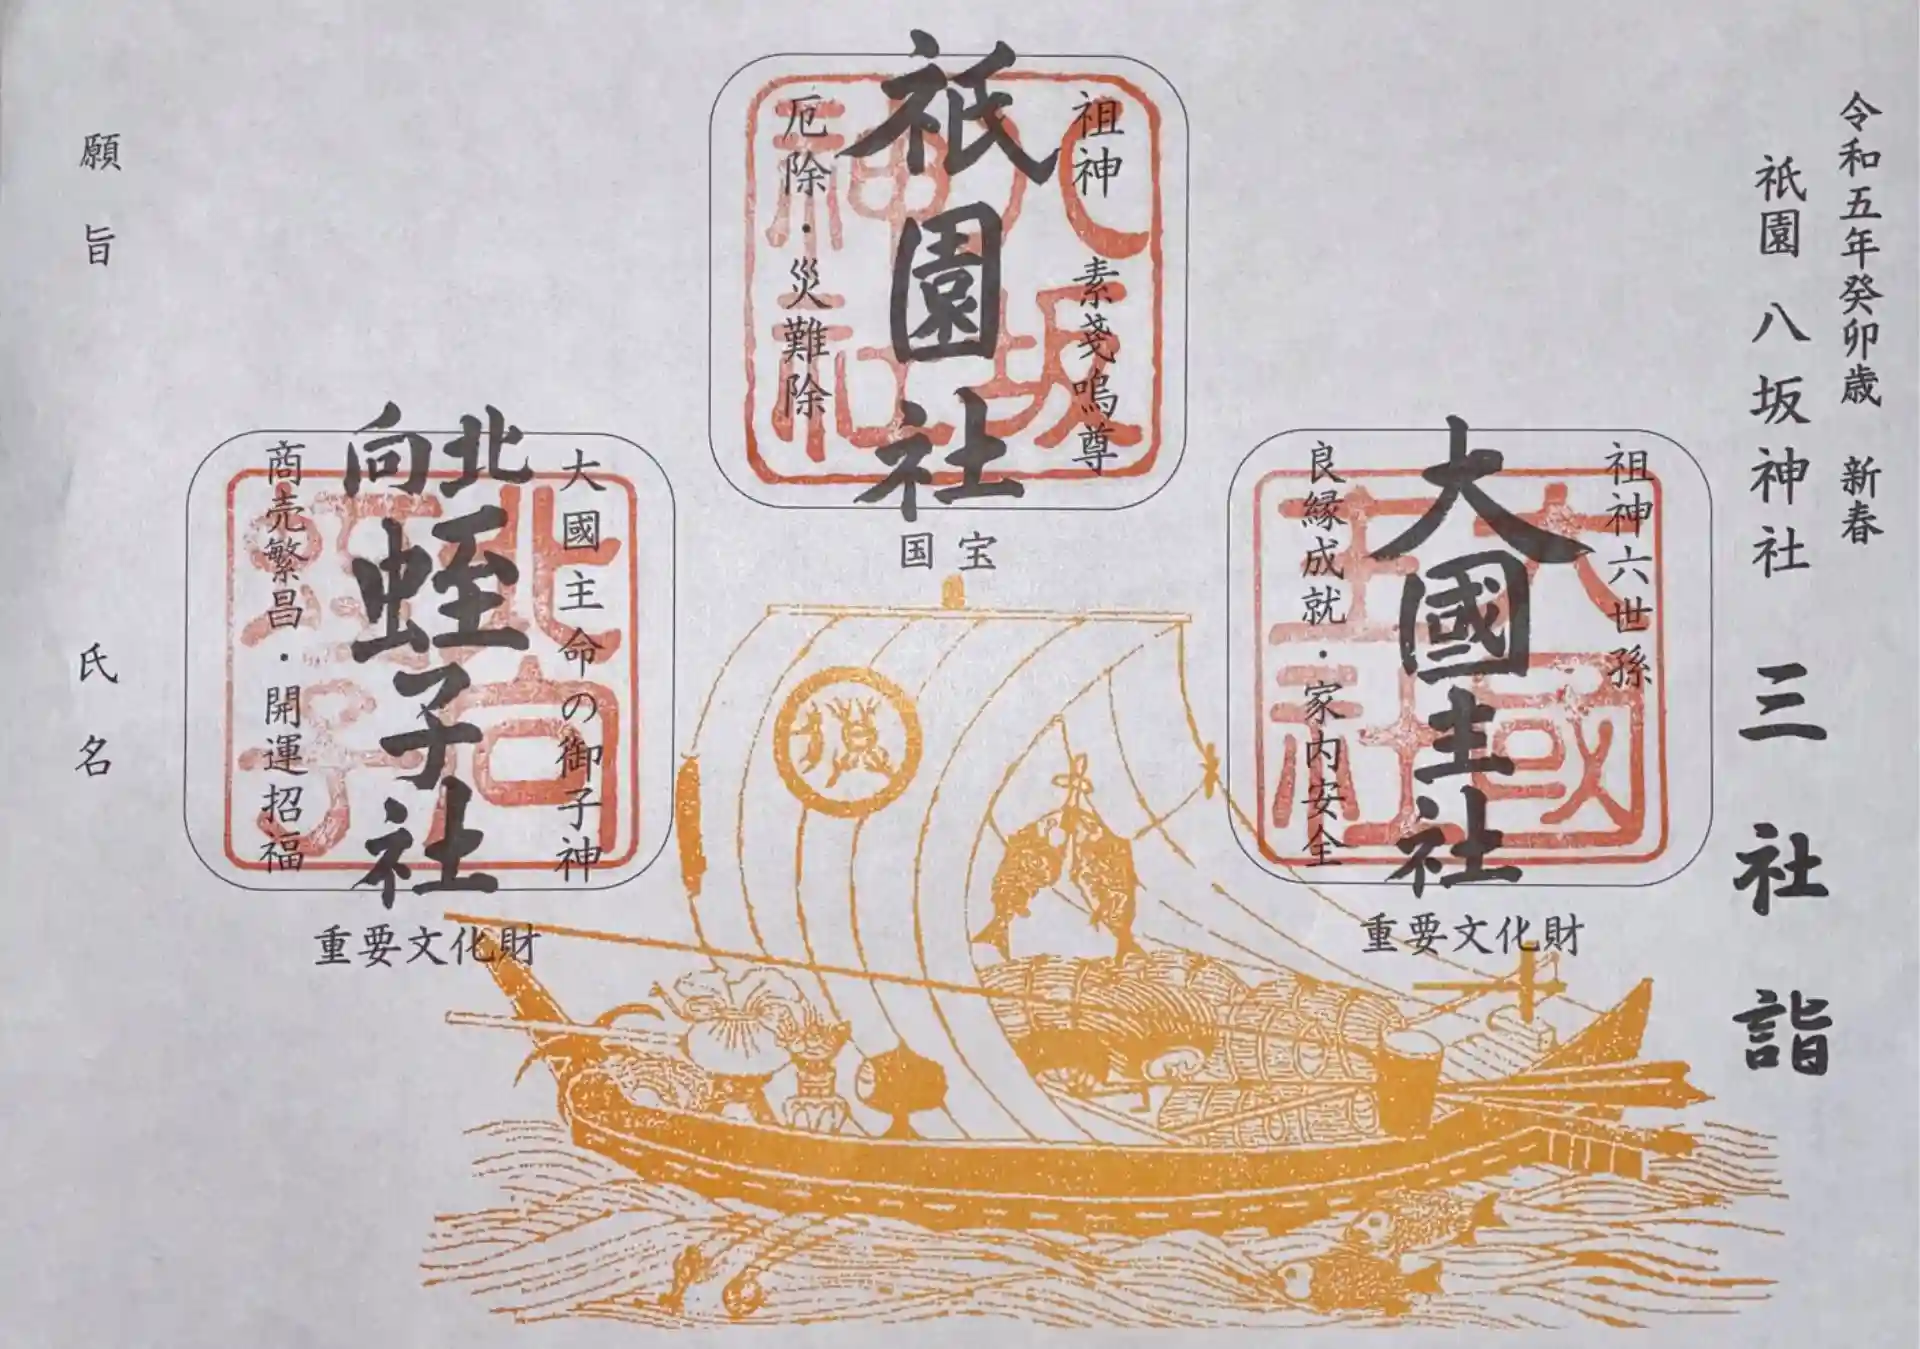 令和五年癸卯歳 新春
祇園 八坂神社 三社詣
祖神六世孫
大國主社
良縁成就・家内安全
重要文化財
祖神 素戔嗚尊
祇園社
厄除・災難除
国宝
大國主命の御子神
北向
蛭子社
商売繁昌・開運招福
重要文化財
願旨
氏名
八坂
神社
大國
主社
北向
蛭子